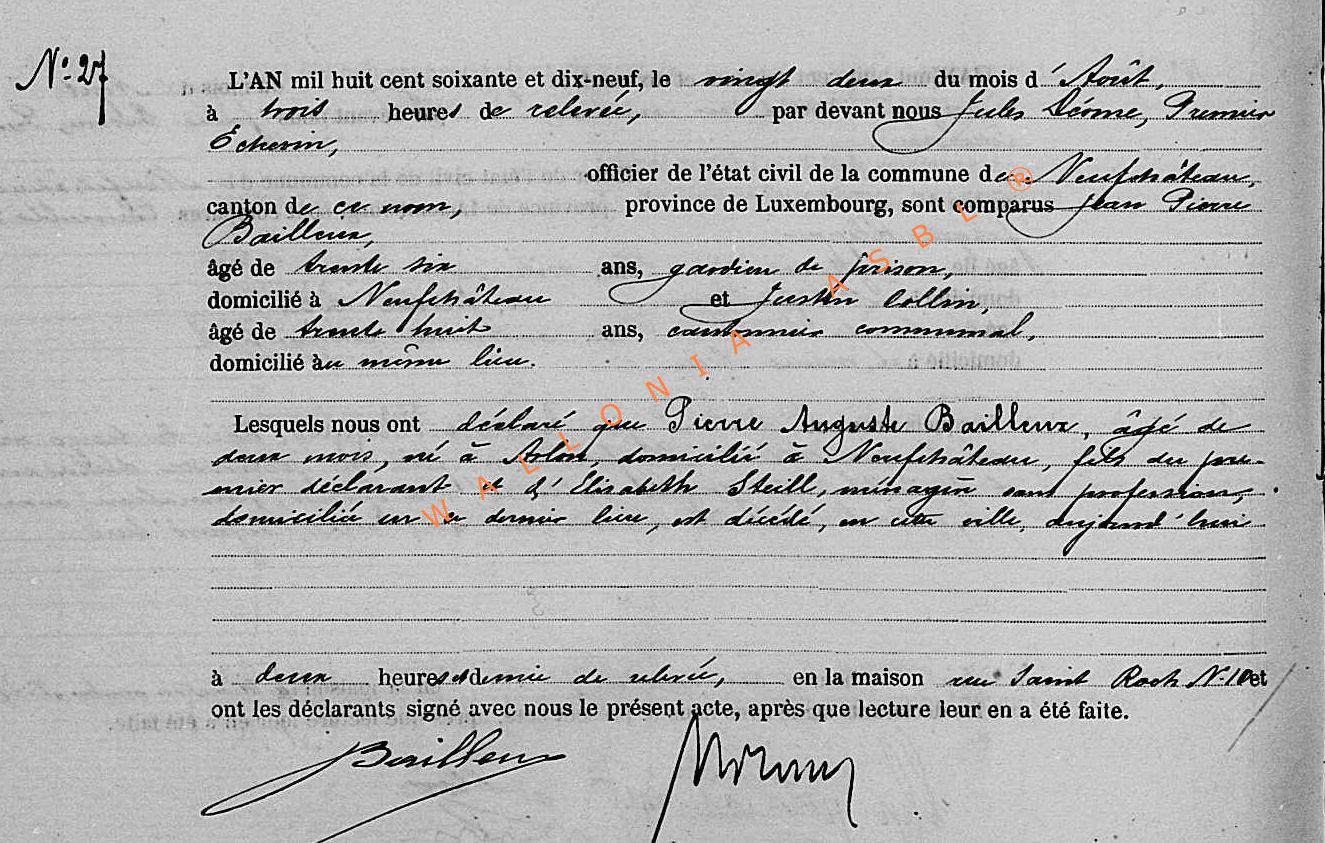 N° 27
L'AN mil huit cent soixante et dix-neuf, le vingt deux du mois d'Août,
à trois heures de relevée, par devant nous Jules Dérome, Premier
Echevin,
officier de l'état civil de la commune de Neufchâteau,
canton de ce nom, province de Luxembourg, sont comparus Jean Pierre
Bailleux,
âgé de trente six ans, gardien de prison,
domicilié à Neufchâteau et Justin Collin,
âgé de trente huit ans, cantonnier communal,
domicilié au même lieu.
Lesquels nous ont déclaré que Pierre Auguste Bailleux, âgé de
deux mois, né à Arlon, domicilié à Neufchâteau, fils du pre-
mier déclarant et d'Elisabeth Steill, ménagère sans profession,
domiciliée en ce dernier lieu, est décédé, en cette ville, aujourd'hui
à deux heures et demie de relevée, en la maison rue Saint Roch N° 10 et
ont les déclarants signé avec nous le présent acte, après que lecture leur en a été faite.
Bailleux
WALLONIA ASBL ®